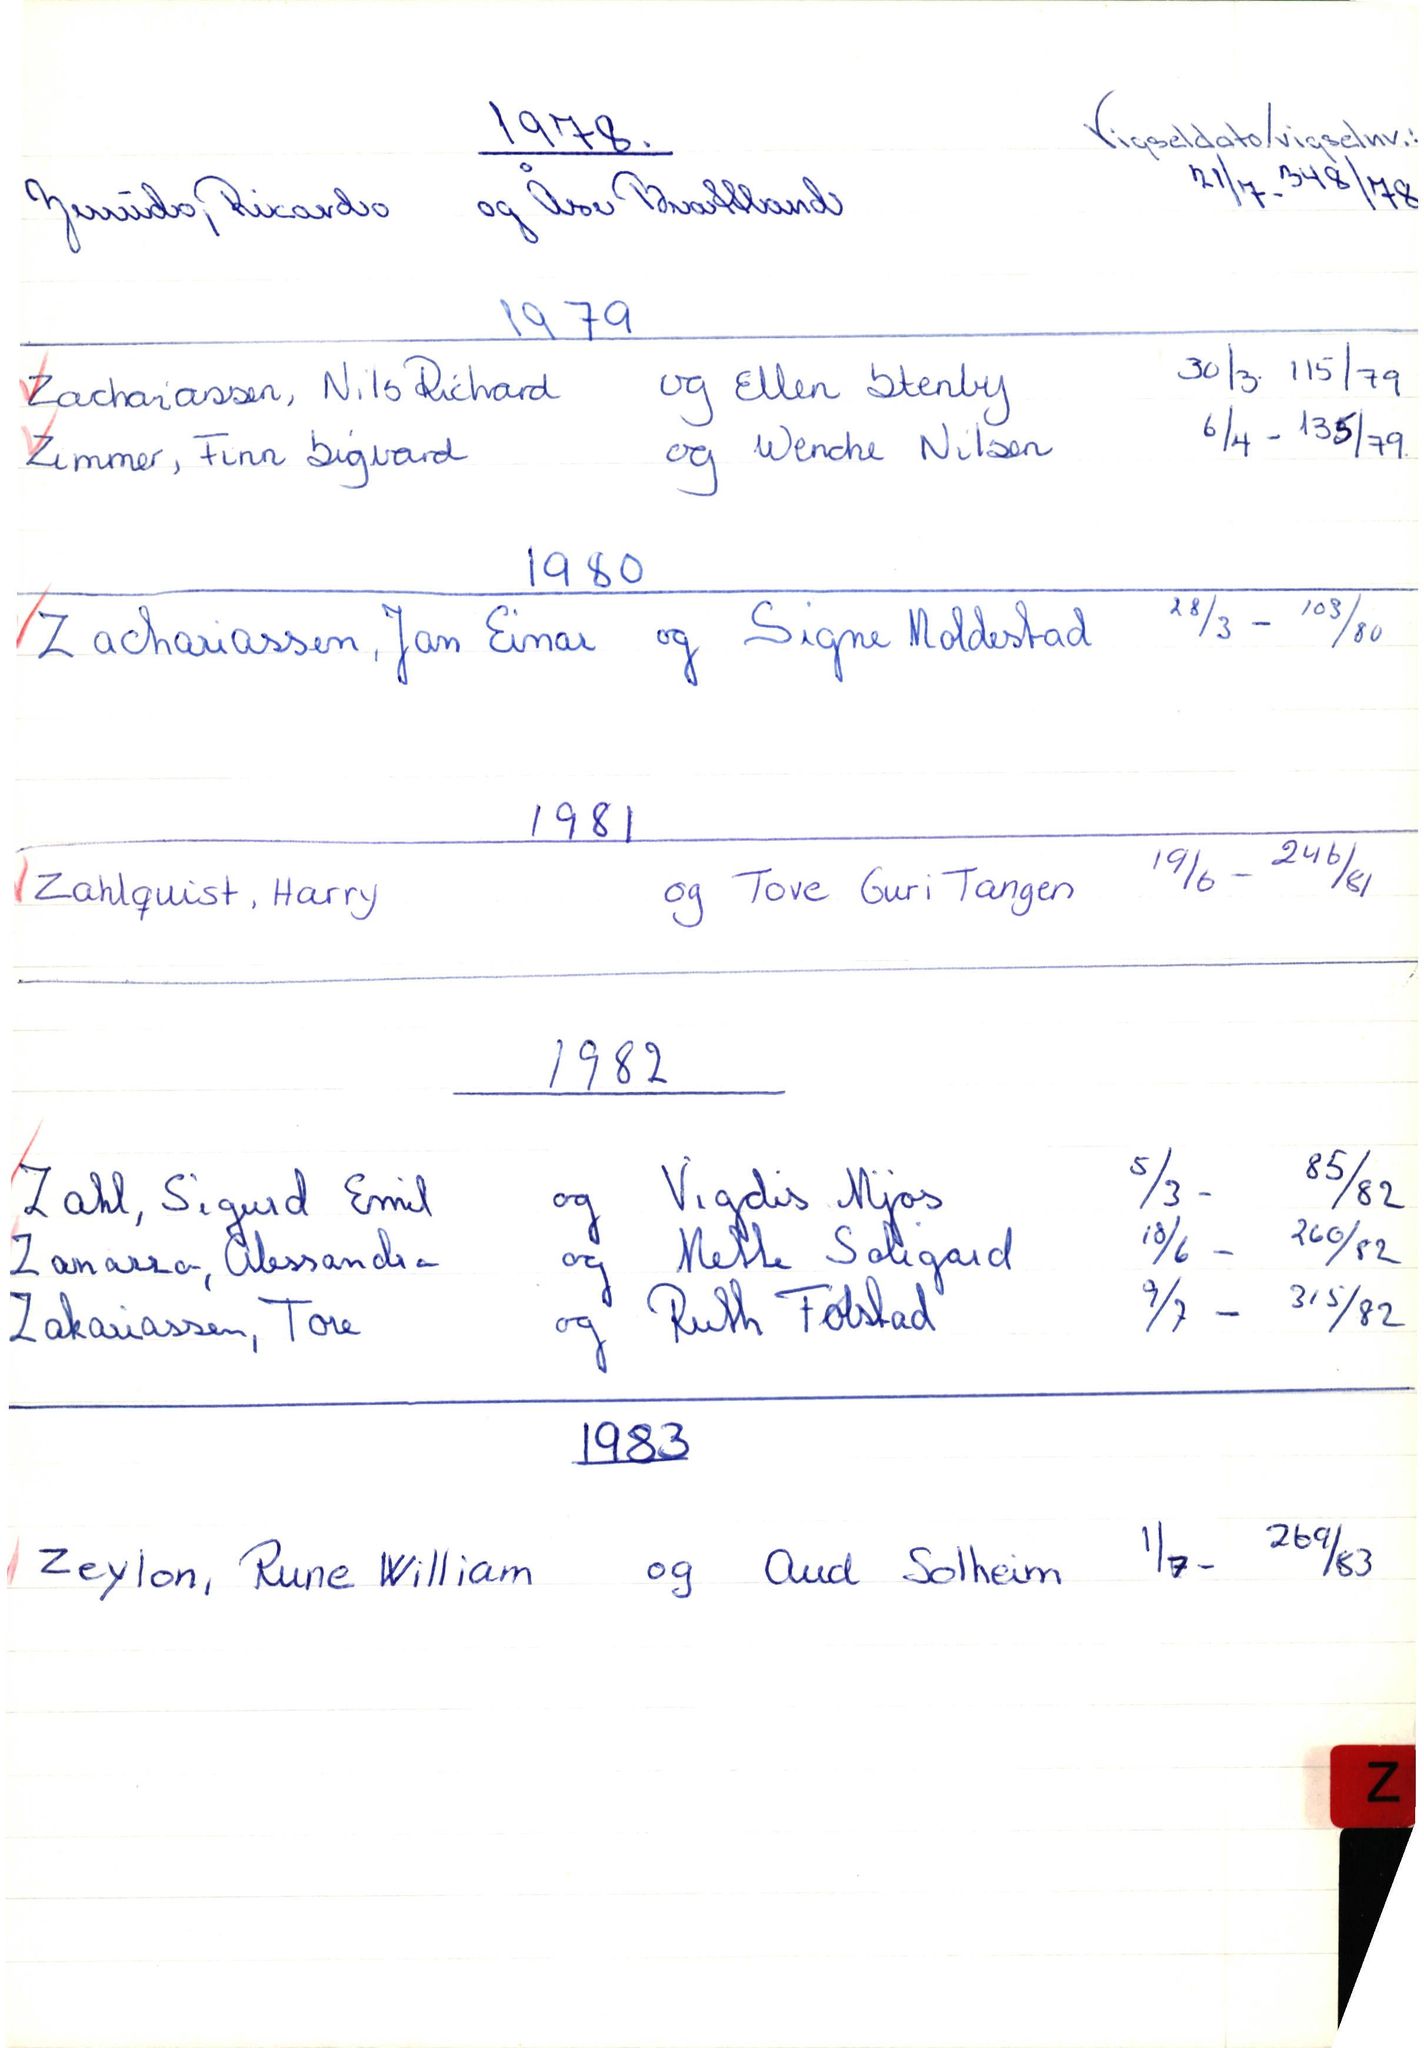 1978.
Vigseldato/vigselnr.:
Ricardo og Åse Brattland 21/7-348/78
1979
Zachariassen, Nils Richard og Ellen Stenby 30/3. 115/79
Zimmer, Finn Sigvard og Wenche Nilsen 6/4 - 135/79.
1980
Zachariassen, Jan Einar og Signe Moldestad 28/3 - 103/80
1981
Zahlquist, Harry og Tove Guri Tangen 19/6 - 246/81
1982
Zahl, Sigurd Emil og Vigdis Mjøs 5/3 - 85/82
og Mette Soligard 18/6 - 260/82
Zakariassen, Tore og Ruth Følstad 9/7 - 315/82
1983
Zeylon, Rune William og Aud Solheim 1/7 - 269/83
Z